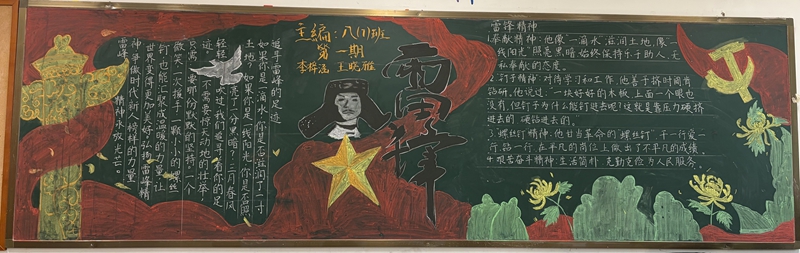 主编：八(1)班
第一期
李梓涵 王晓雅
雷锋
追寻雷锋的足迹
如果你是一滴水，你是否滋润了一寸
土地？如果你是一线阳光，你是否照
亮了一分黑暗？三月春风
轻轻吹过，我们追寻着你的足
迹。不需要惊天动地的壮举，
只需要那份默默的坚持，一个
微笑，一次援手，一颗小小的螺丝
钉也能汇聚成温暖的力量，让
世界变得更加美好，弘扬雷锋精
神争做时代新人，榜样的力量
雷锋精神永放光芒。
雷锋精神
1.奉献精神：他像"一滴水"滋润土地，像一
线阳光"照亮黑暗，始终保持乐于助人、无
私奉献的态度。
2.钉子精神"对待学习和工作，他善于挤时间有
钻研。他说过："一块好好的木板，上面一个眼也
没有，但钉子为什么能钉进去呢？这就是靠压力硬挤
进去的，硬钻进去的。"
3.螺丝钉精神：他甘当革命的"螺丝钉"，干一行爱一
行、钻一行，在平凡的岗位上做出了不平凡的成绩。
4.艰苦奋斗精神：生活简朴，克勤克俭，为人民服务。